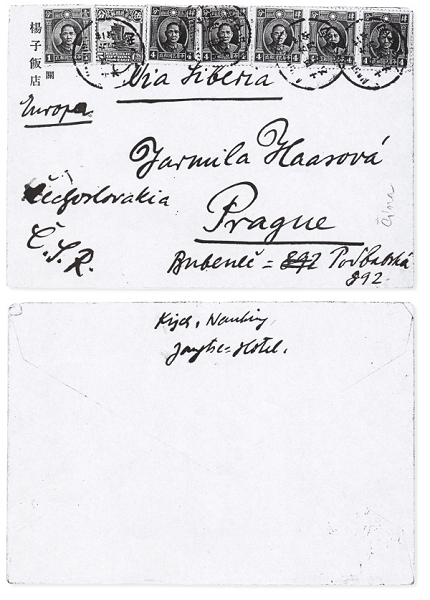 楊子飯店
Via Siberia
Europa
Jarmila Haasová
Čechoslovakia
Prague
Č.S.R.
Bubeneč = 892 Podbabská
892
Čína
Kisch, Nanking
Jangtse-Hotel.